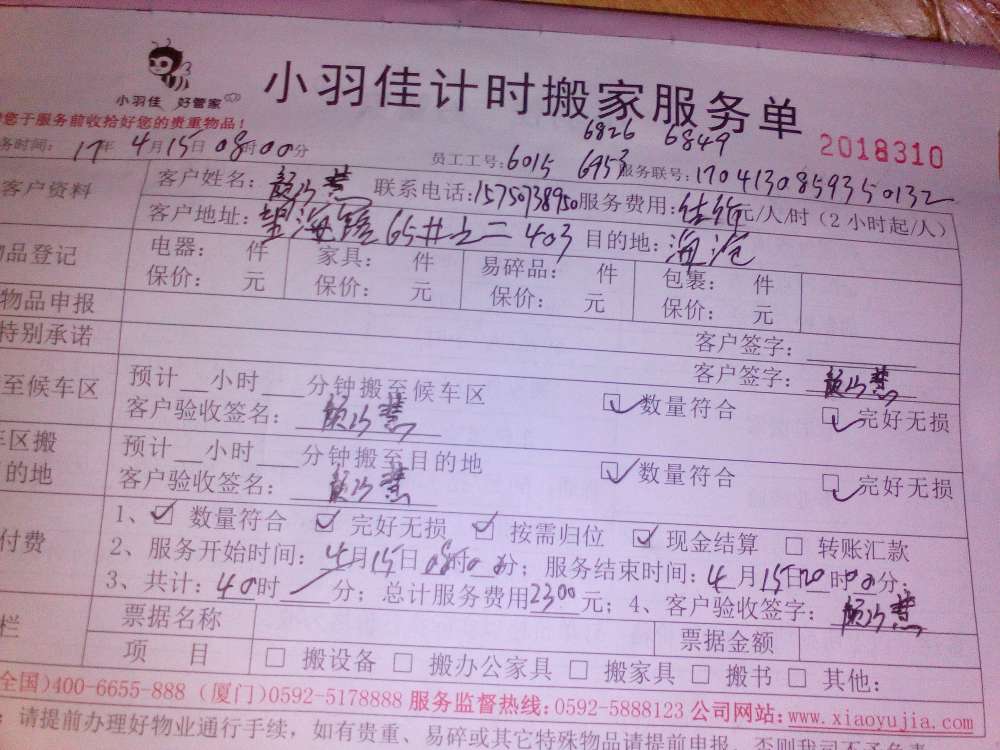 小羽佳计时搬家服务单
小羽佳 好管家
您于服务前收拾好您的贵重物品！
6826 6849
2018310
务时间：17年4月15日08时00分 员工工号：6015 6953 服务联号：170413085935 0132
客户资料 客户姓名： 联系电话：15750738950 服务费用：元/人/时（2小时起/人）
客户地址：望海路65#之二403 目的地：海沧
物品登记 电器： 件 家具： 件 易碎品： 件 包裹： 件
保价： 元 保价： 元 保价： 元 保价： 元
物品申报 客户签字：
特别承诺 客户签字：
至候车区 预计 小时 分钟搬至候车区 数量符合 完好无损
客户验收签名：
车区搬 预计 小时 分钟搬至目的地 数量符合 完好无损
目的地 客户验收签名：
1、 数量符合 完好无损 按需归位 现金结算 转账汇款
付费 2、服务开始时间：4月15日08时00分；服务结束时间：4月15日20时00分；
3、共计：40时 分；总计服务费用2300元；4、客户验收签字：
栏 票据名称 票据金额
项 目 搬设备 搬办公家具 搬家具 搬书 其他：
全国)400-6655-888（厦门)0592-5178888 服务监督热线：0592-5888123 公司网站：www.xiaoyujia.com
：请提前办理好物业通行手续，如有贵重、易碎或其它特殊物品请提前申报，否则我司不